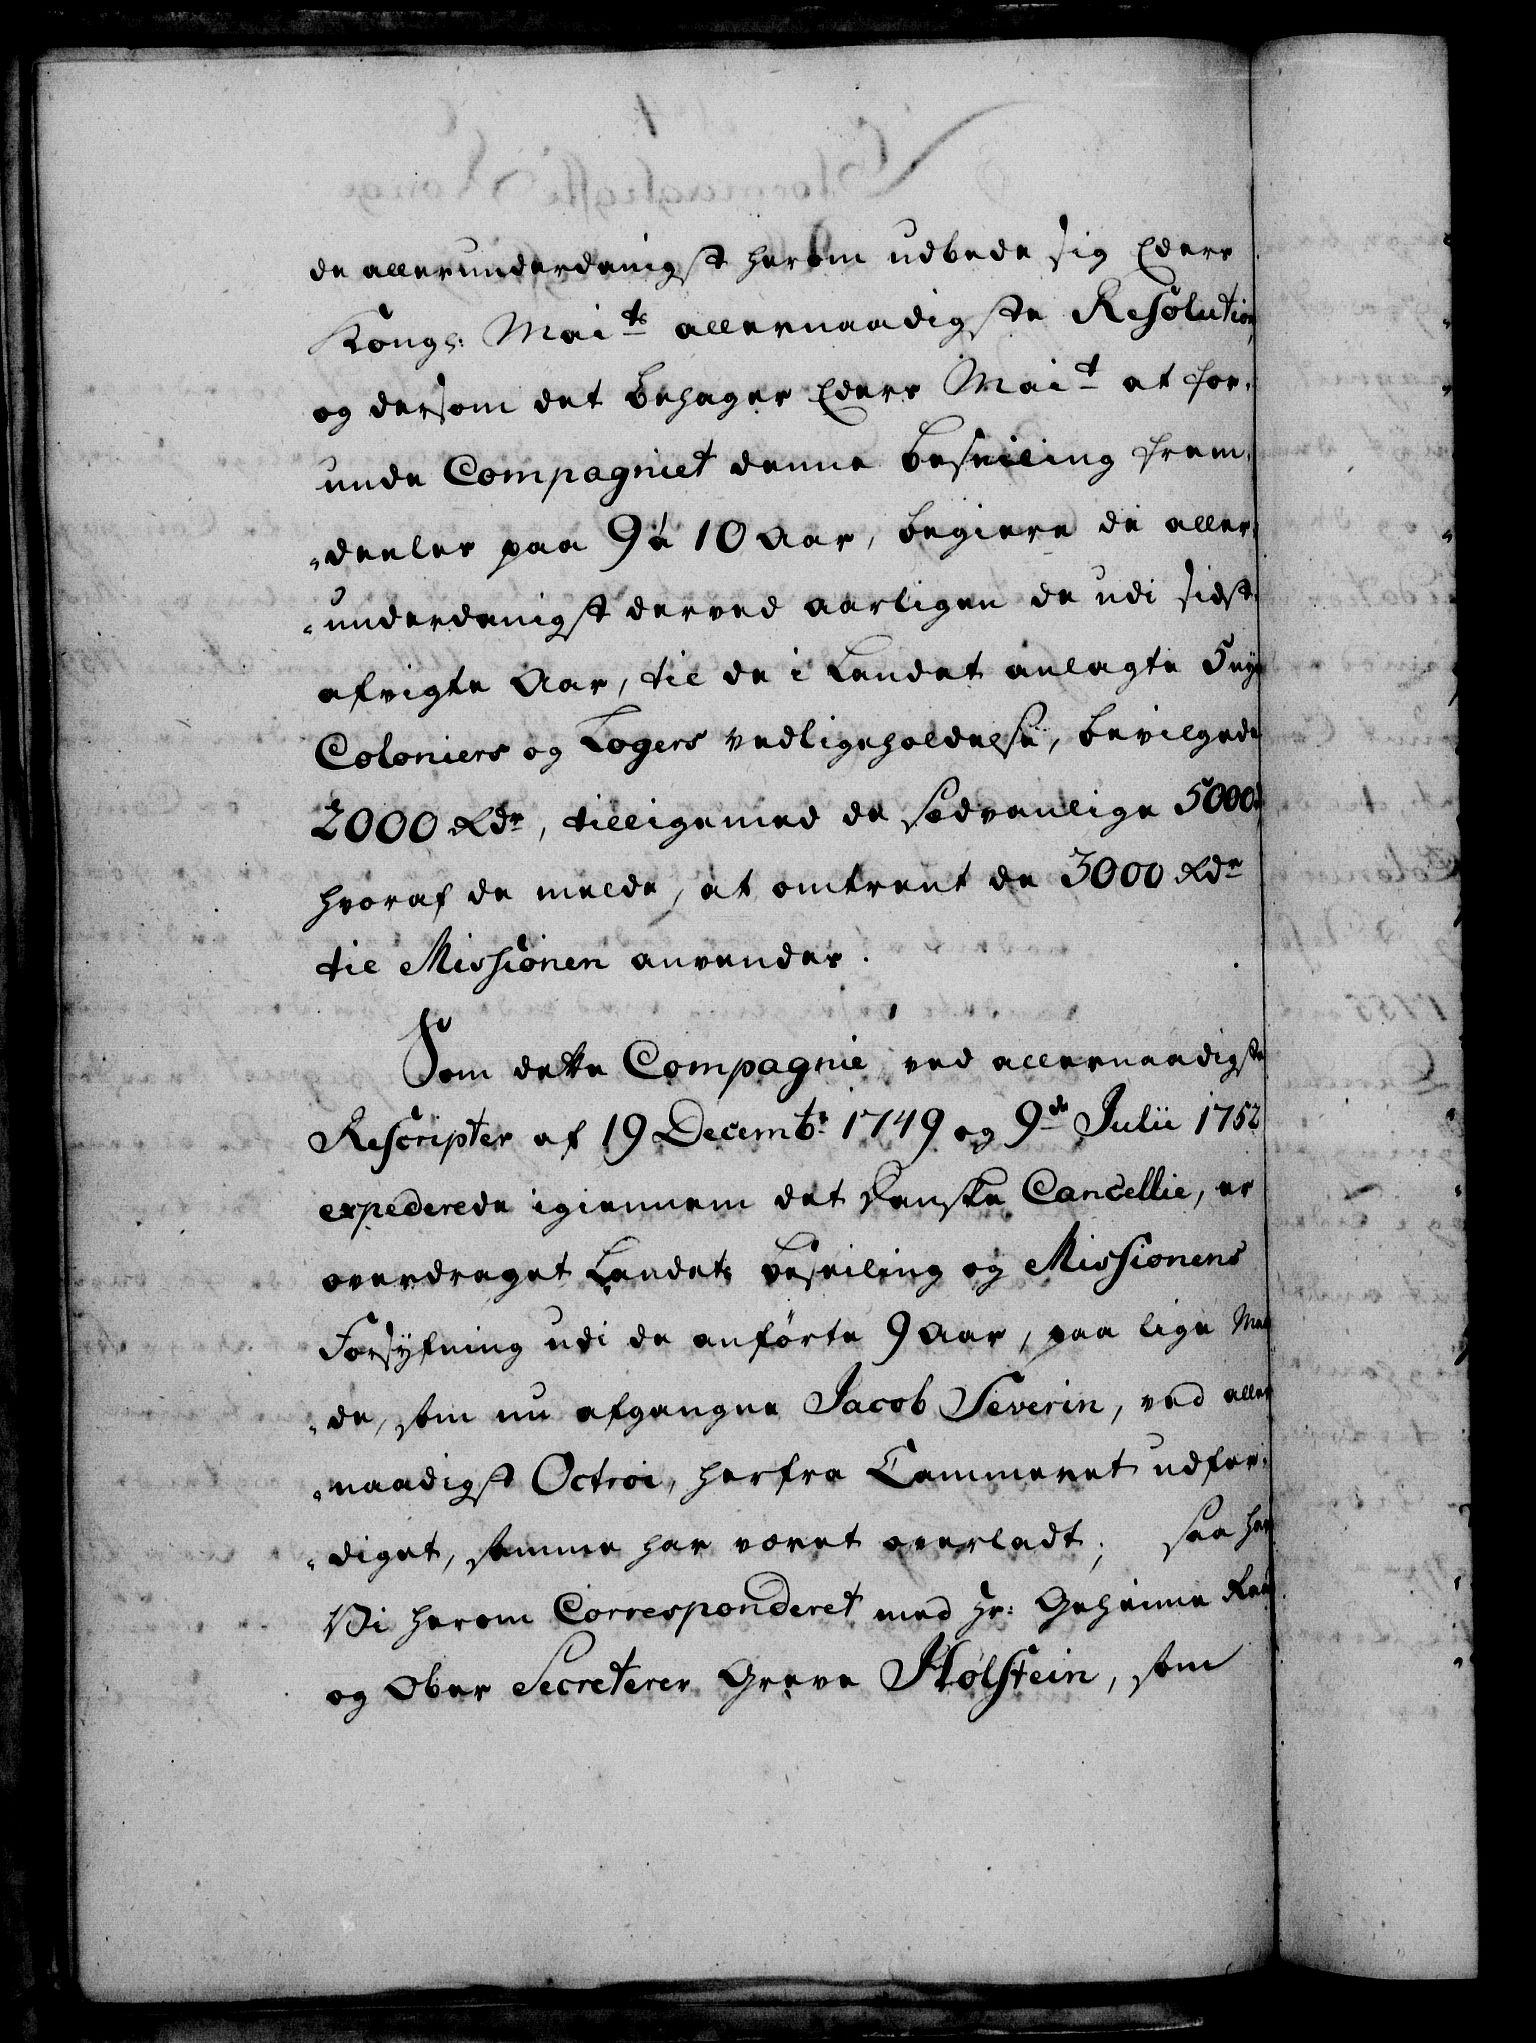 de allerunderdanigst herom udbede sig Eders
Kongs: Maits allernaadigste Resolution,
og dersom det behager Eders Mait at for¬
unde Compagniet denne Beseiling frem¬
„deeles paa 9 à 10 Aar, begiere de aller¬
„underdanigst derved aarligen de udi sidst¬
afvigte Aar, til de i Landet anlagte
Coloniers og Logers vedligeholdelse, bevilgede
2000 Rdr, tilligemed de sædvanlige 5000
hvoraf de melde, at omtrent de 3000 Rdr
til Missionen anvendes.
Som dette Compagnie ved allernaadigste
Rescripter af 19 Decembr: 1749 og 9de Julii 1752
expederede igiennem det danske Cancellie, er
overdraget Landets beseiling og Missionens
Forsÿfning udi de anførte 9 Aar, paa lige Maa
„de, som nu afgangne Jacob Severin, ved aller
„naadigst Octroi, herfra Cammeret udfær¬
„diget, samme har været overladt; saa har
Vi herom Corresponderet med Hr: Geheime Raad
og Ober Secreterer Greve Holstein, som